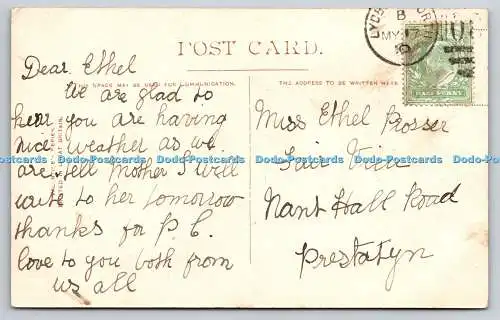 POST CARD.
SPACE MAY BE USED FOR COMMUNICATION.
THE ADDRESS TO BE WRITTEN HERE
B
MY 17
10
HALFPENNY
Dear Ethel
We are glad to
hear you are having
nice weather as we
are well Mother I will
write to her tomorrow
thanks for P. C.
love to you both from
us all
Miss Ethel Prosser
Fair View
Nant Hall Road
Prestatyn
Dodo-Postcards Dodo-Postcards Dodo-Postcards Dodo-Postcards Dodo-Postcards